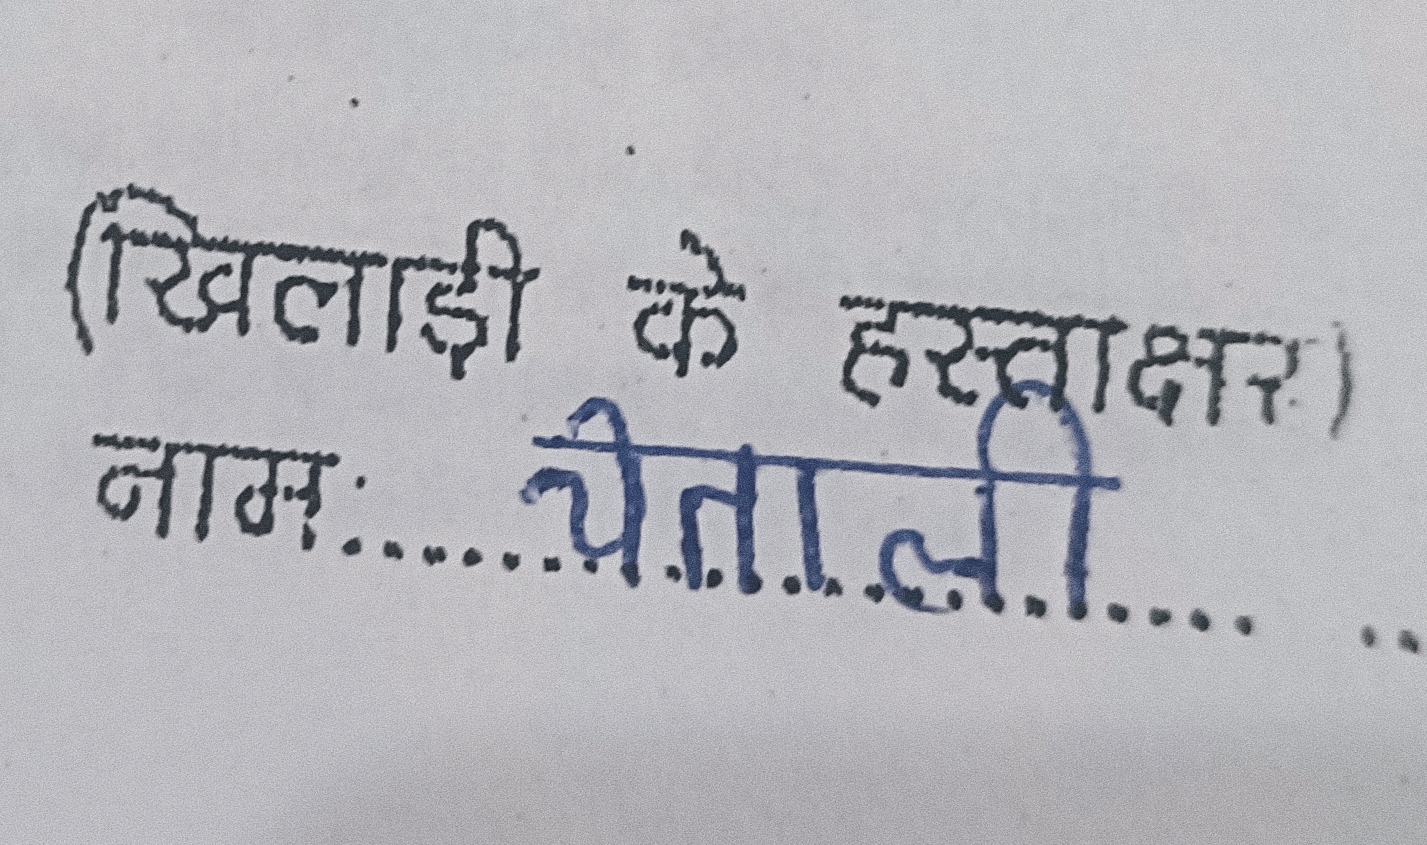 (खिलाड़ी के हस्ताक्षर)
नाम:.......चेताली............